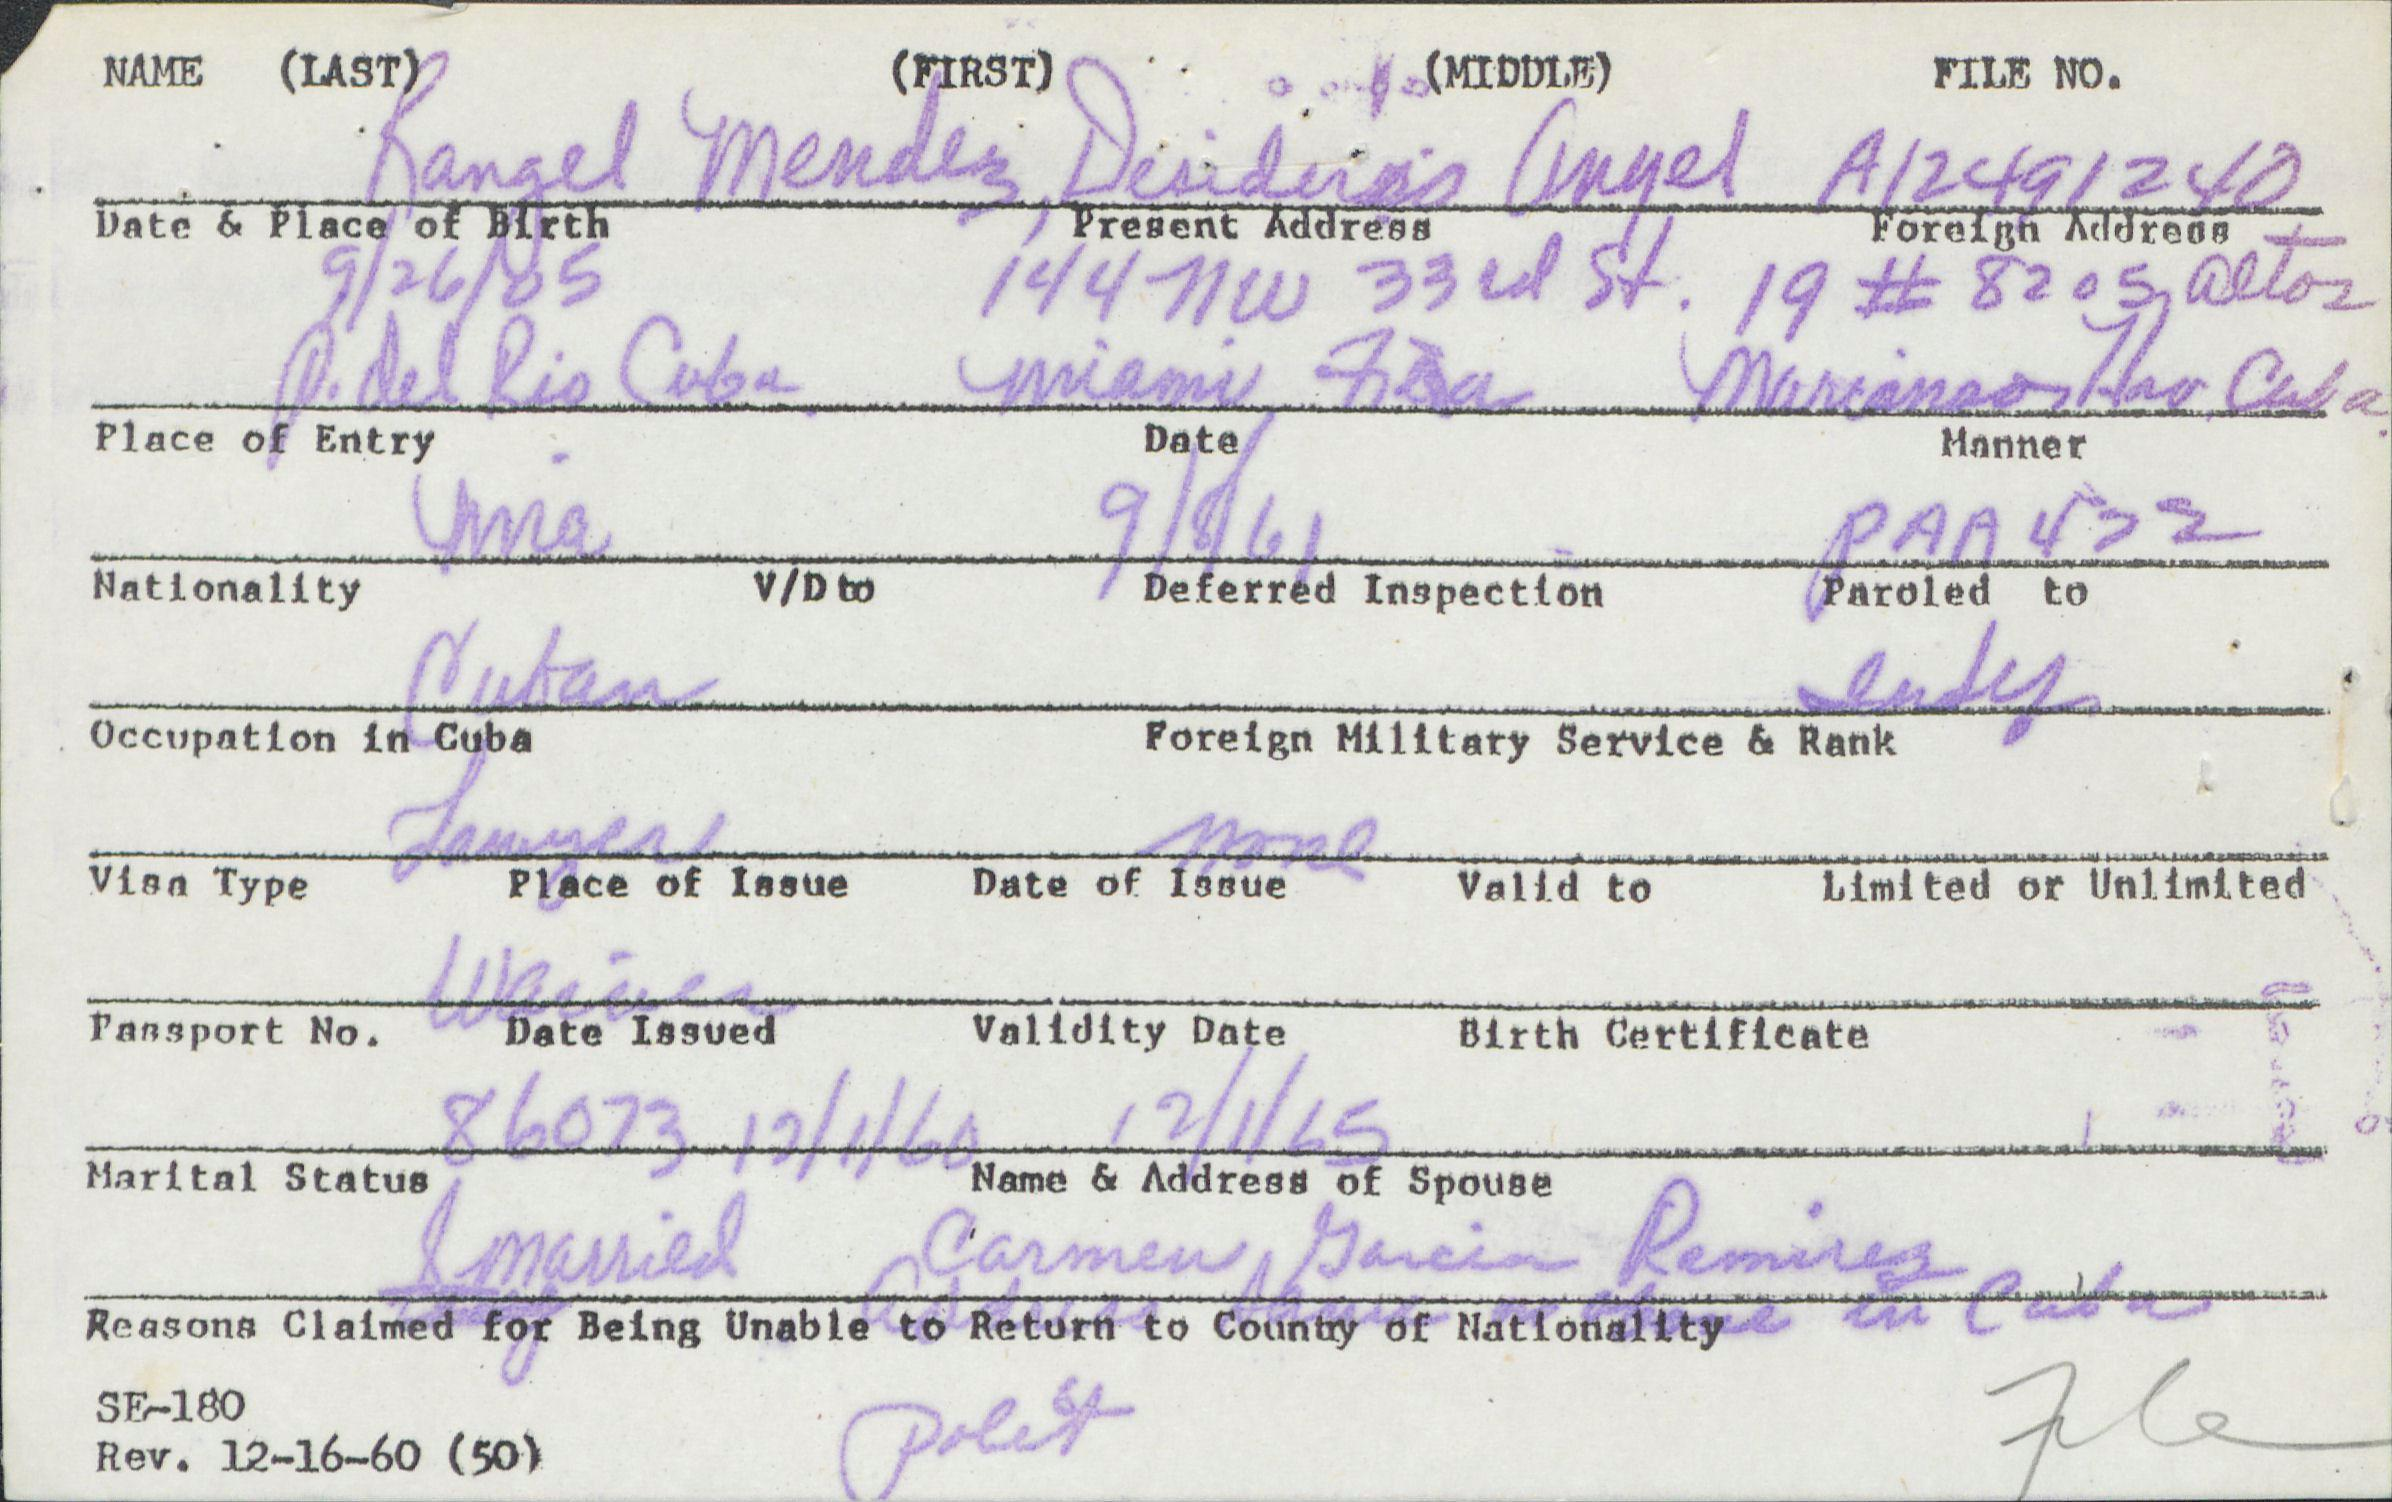 NAME (LAST) (FIRST) (MIDDLE) FILE NO.
Rangel Mendez, Desiderio Angel A12491240
Date & Place of Birth Present Address Foreign Address
9/26/05 144 NW 33rd St. 19 # 8205 Altos
P. del Rio Cuba Miami Fla Marianao, Hav. Cuba.
Place of Entry Date Manner
Mia 9/8/61 PAA 422
Nationality V/D to Deferred Inspection Paroled to
Cuban Indef
Occupation in Cuba Foreign Military Service & Rank
Lawyer none
Visa Type Place of Issue Date of Issue Valid to Limited or Unlimited
Waiver
Passport No. Date Issued Validity Date Birth Certificate
86073 12/1/60 12/1/65
Marital Status Name & Address of Spouse
married Carmen Garcia Ramirez
Address in Cuba
Reasons Claimed for Being Unable to Return to County of Nationality
SE-180
Rev. 12-16-60 (50)
Polit
File